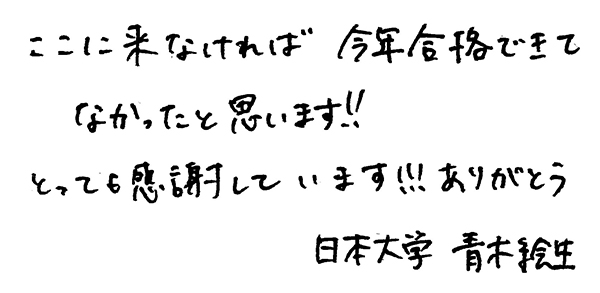 ここに来なければ 今年合格できて
なかったと思います!!
とっても感謝しています!!! ありがとう
日本大学 青木絵生